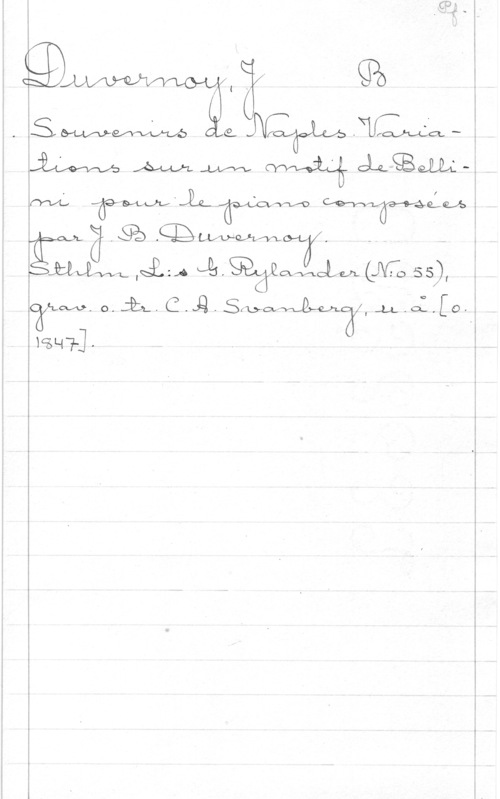 Pf.
Duvernoy, J B
Souvenirs de Naples. Varia-
tions sur un motif de Belli-
ni pour le piano composées
par J. B. Duvernoy.
Sthlm, L:s G. Rylander (N:o 55),
grav. o. tr. C. A. Svanberg, u. å. [o.
1847].